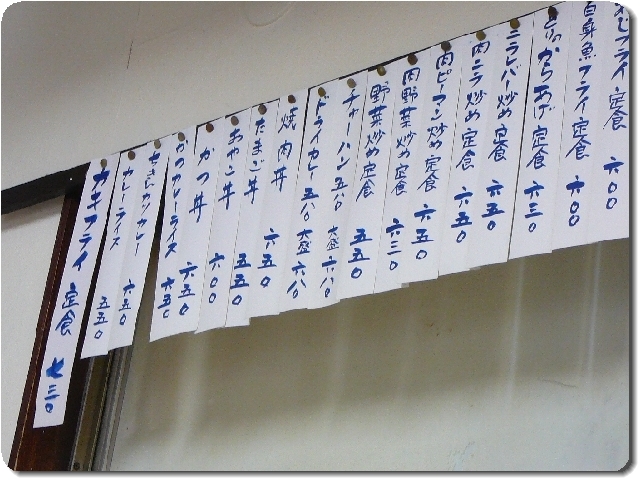 じフライ定食 六〇〇
白身魚フライ定食 六〇〇
とりのからあげ定食 六三〇
ニラレバー炒め定食 六五〇
肉ニラ炒め定食 六五〇
肉ピーマン炒め定食 六五〇
肉野菜炒め定食 六三〇
野菜炒め定食 五五〇
チャーハン 五八〇 大盛 六八〇
ドライカレー 五八〇 大盛 六八〇
焼肉丼 六五〇
たまご丼 五五〇
おやこ丼 六〇〇
かつ丼 六五〇
かつカレーライス 六五〇
ちきんカツカレー 六五〇
カレーライス 五五〇
カキフライ定食 七三〇